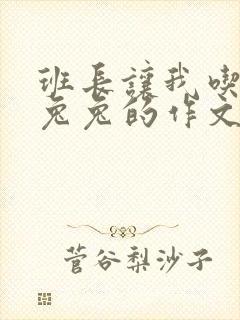 班长让我喫
兔兔的作文
菅谷梨沙子